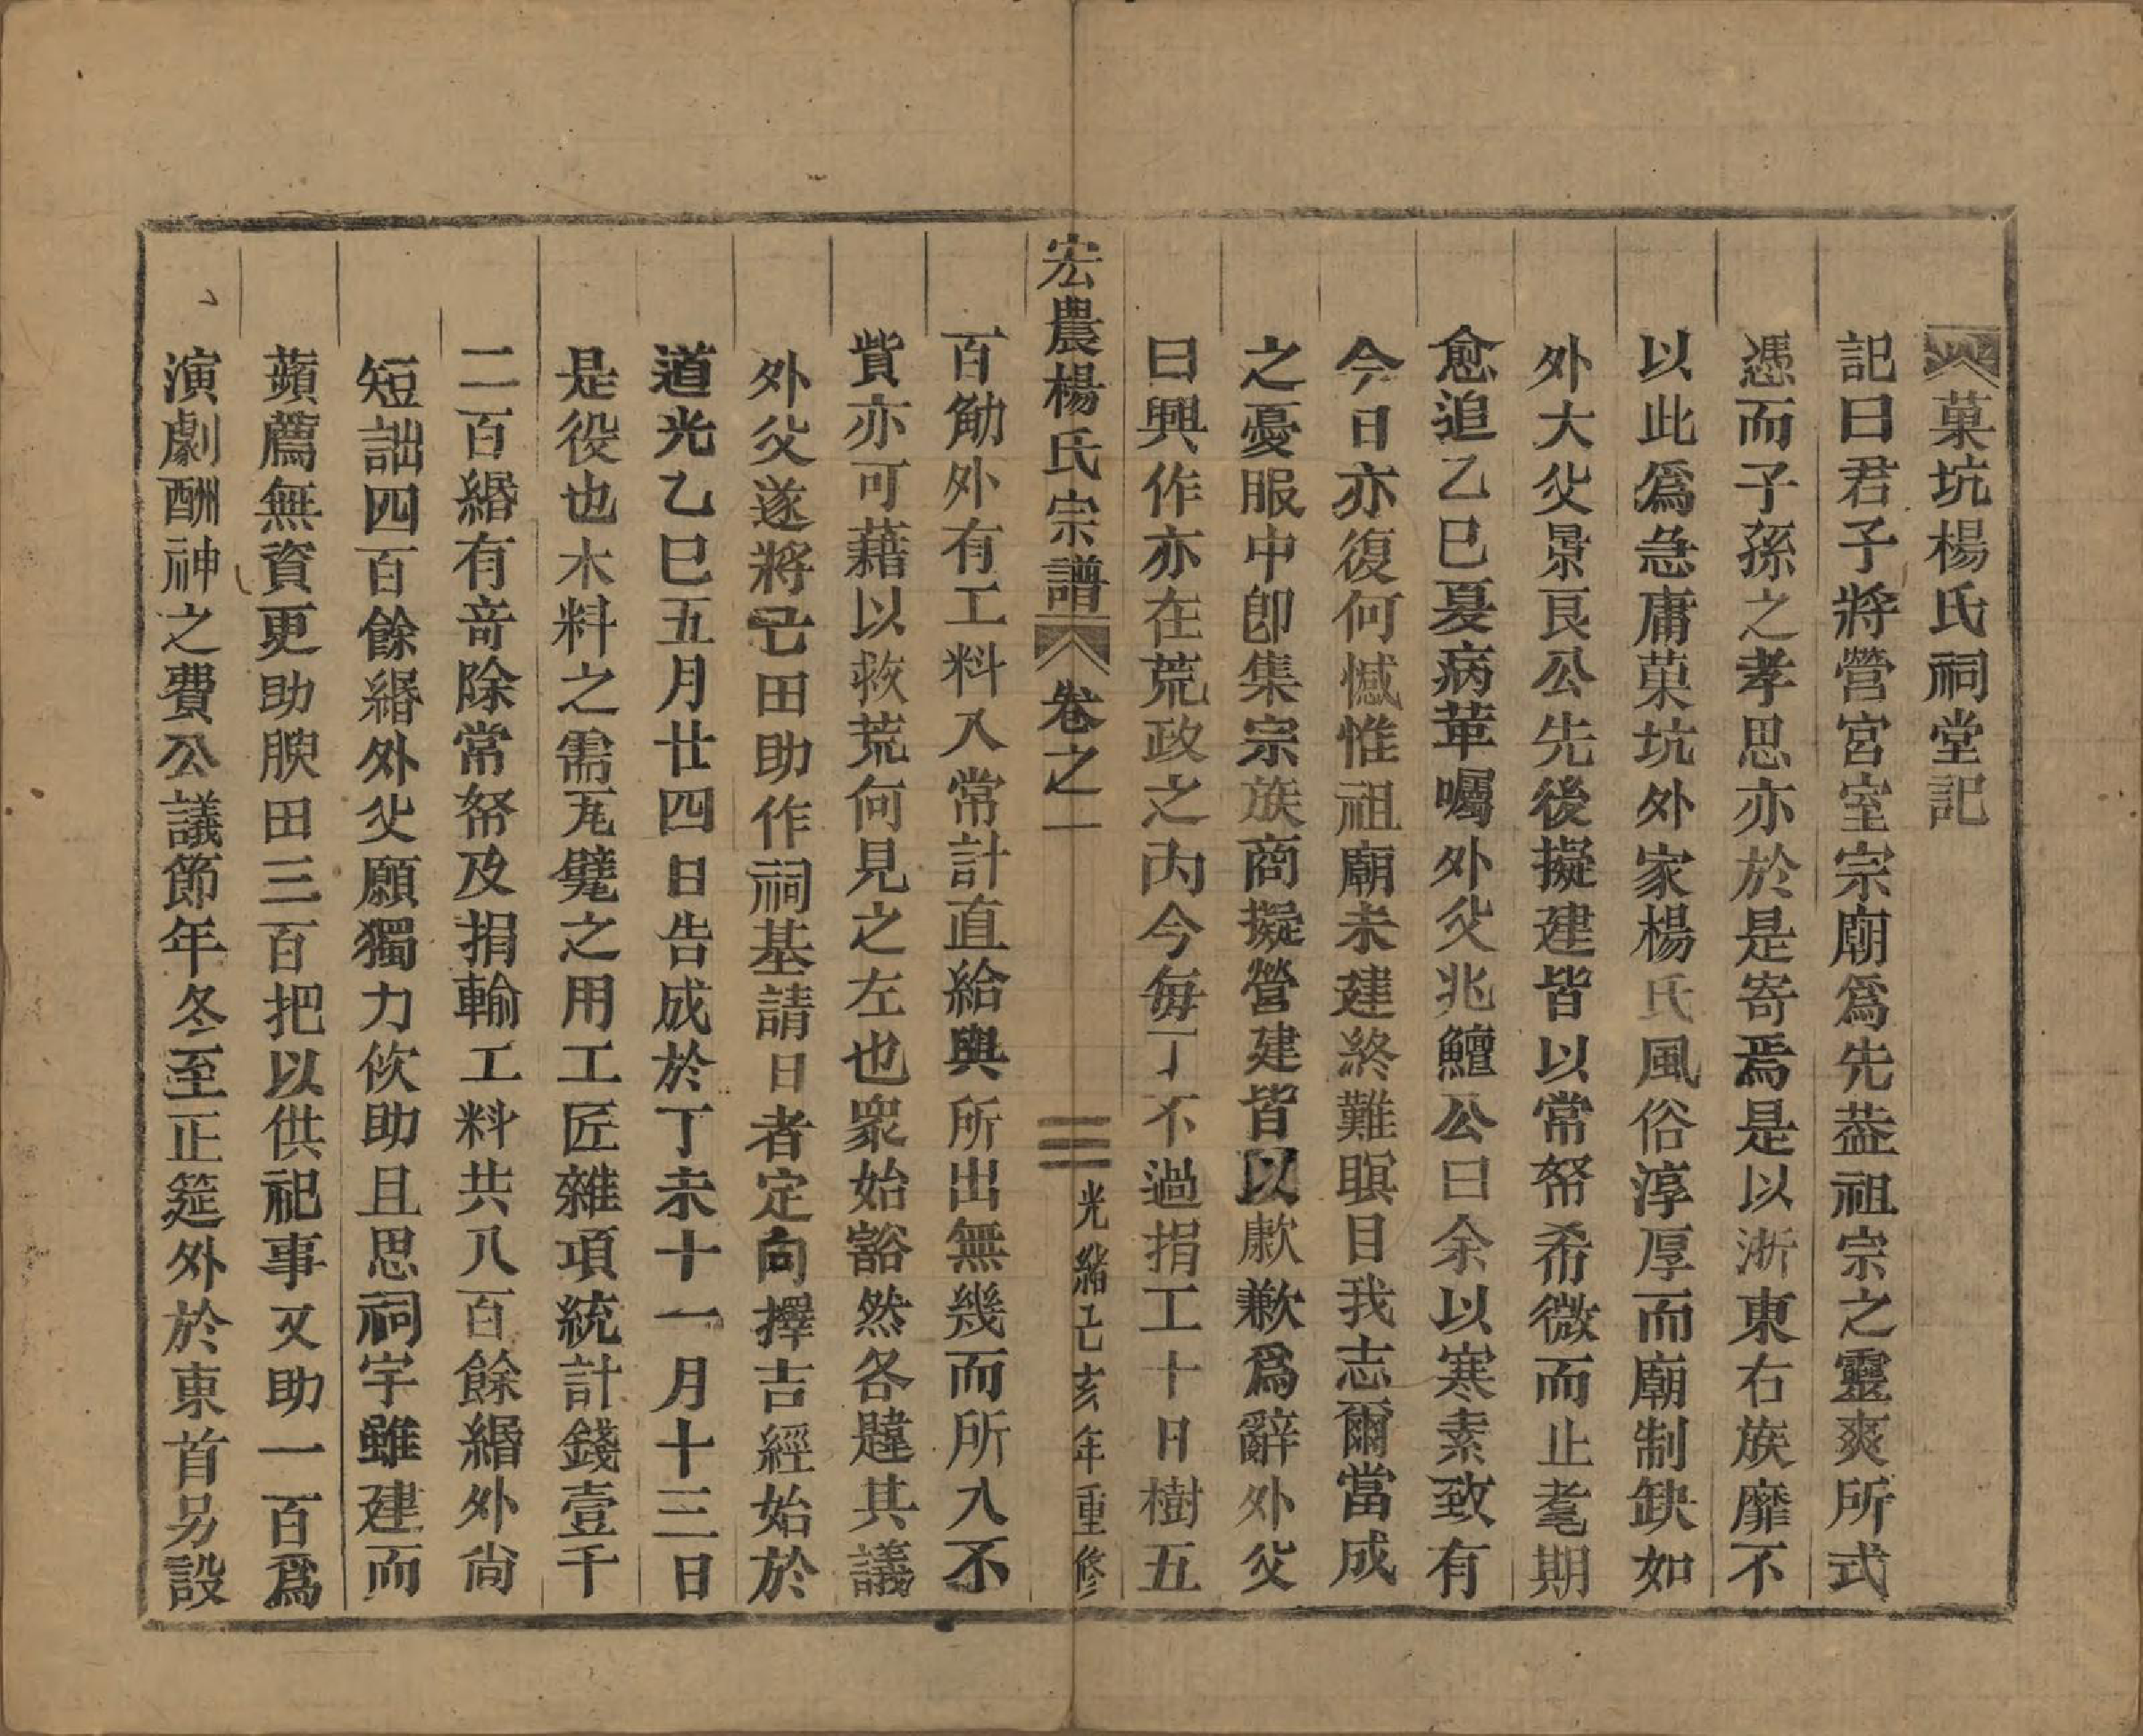 菓坑楊氏祠堂記
記曰君子將營宮室宗廟爲先葢祖宗之靈爽所式
憑而子孫之孝思亦於是寄焉是以浙東右族靡不
以此爲急庸菓坑外家楊氏風俗淳厚而廟制缺如
外大父景艮公先後擬建皆以常帑希微而止耄期
愈追乙巳憂病革囑外父兆鱣公曰余以寒素致有
今日亦復何憾惟祖廟未建終難瞑目我志爾當成
之憂服中卽集宗族商擬營建皆以歉歉爲辭外父
曰興作亦在荒政之內今每丁不過捐工十日樹五
宏農楊氏宗譜 卷之一 三 光緒己亥年重修
百觔外有工料入常計直給與所出無幾而所入不
貲亦可藉以救荒何見之左也衆始豁然各韙其議
外父遂將己田助作祠基請日者定向擇吉經始於
道光乙巳五月廿四日告成於丁未十一月十三日
是役也木料之需瓦甓之用工匠雜項統計錢壹千
二百緡有竒除常帑及捐輸工料共八百餘緡外尙
短詘四百餘緡外父願獨力佽助且思祠宇雖建而
蘋薦無資更助腴田三百把以供祀事又助一百爲
演劇酬神之費公議節年冬至正筵外於東首另設